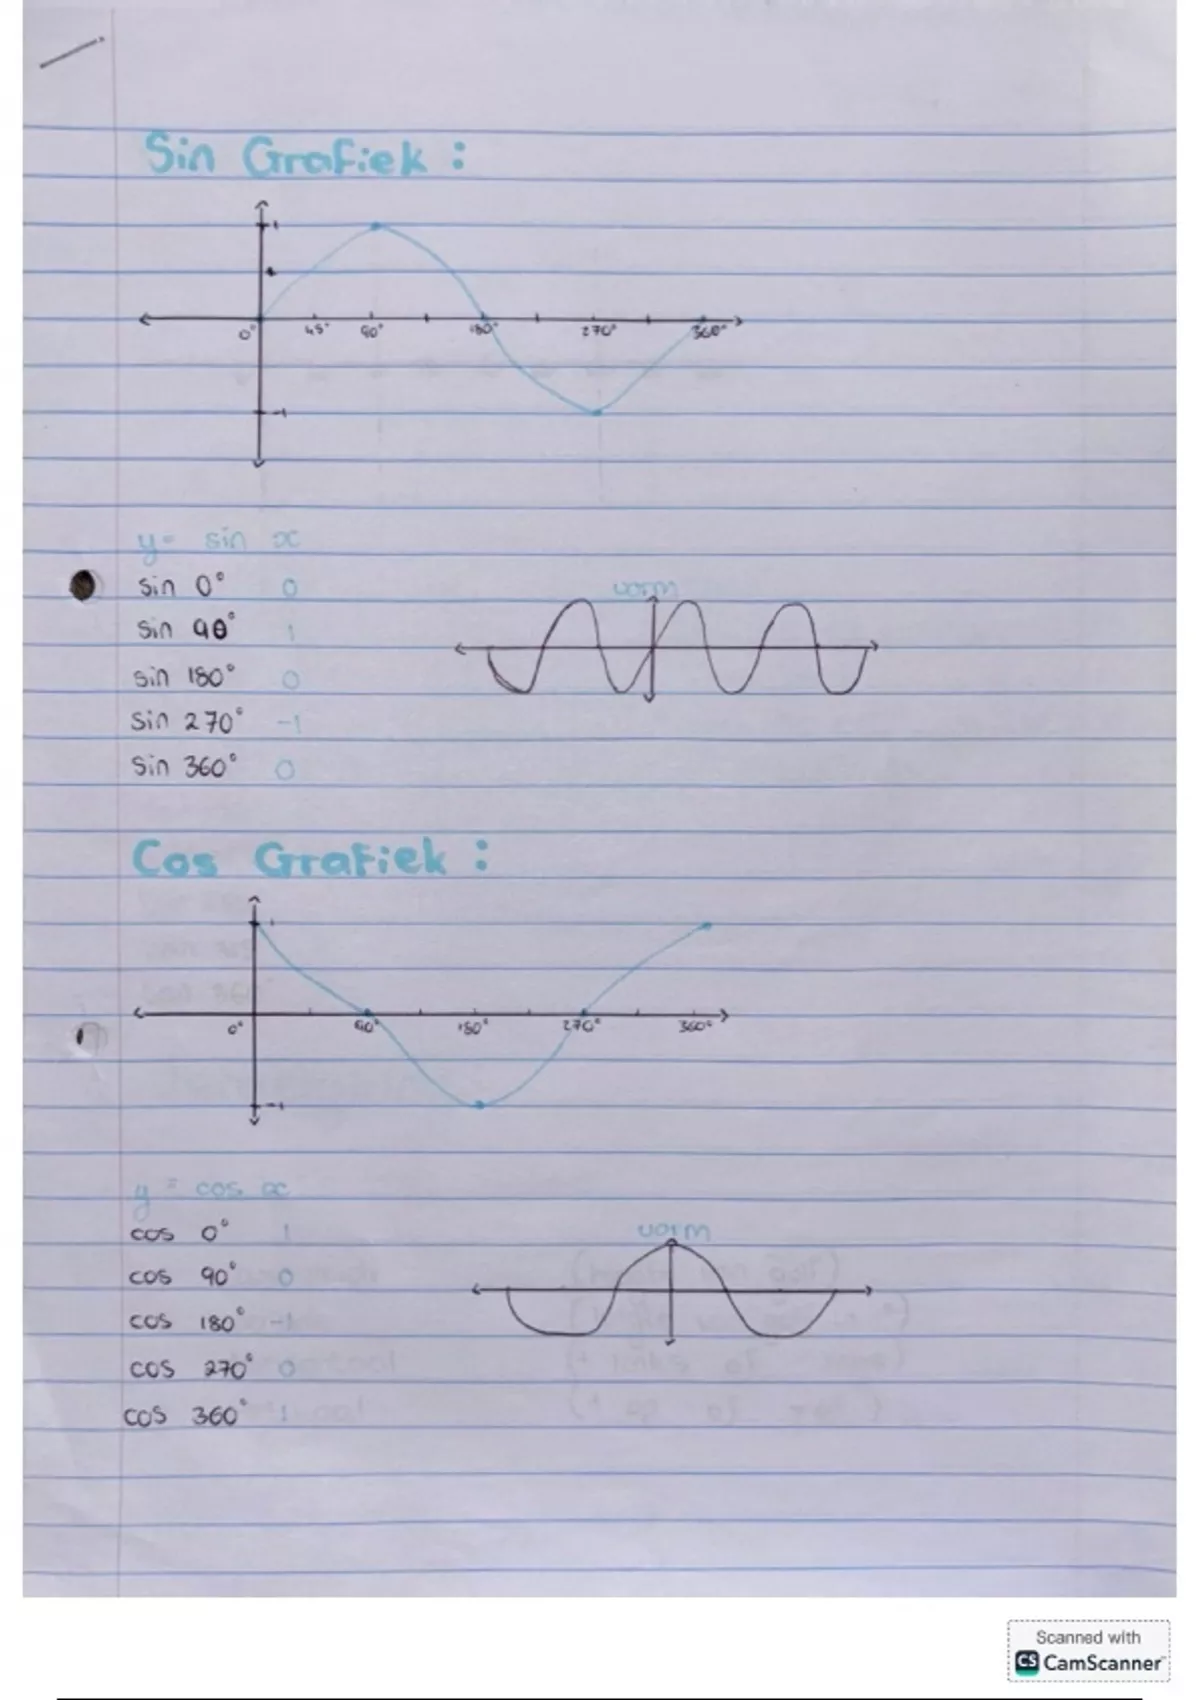 Sin Grafiek :
1
0° 45° 90° 180° 270° 360°
-1
y = sin x
sin 0° 0
vorm
sin 90° 1
sin 180° 0
sin 270° -1
sin 360° 0
Cos Grafiek :
1
0° 90° 180° 270° 360°
-1
y = cos x
cos 0° 1
vorm
cos 90° 0
cos 180° -1
cos 270° 0
cos 360° 1
Scanned with
CS CamScanner